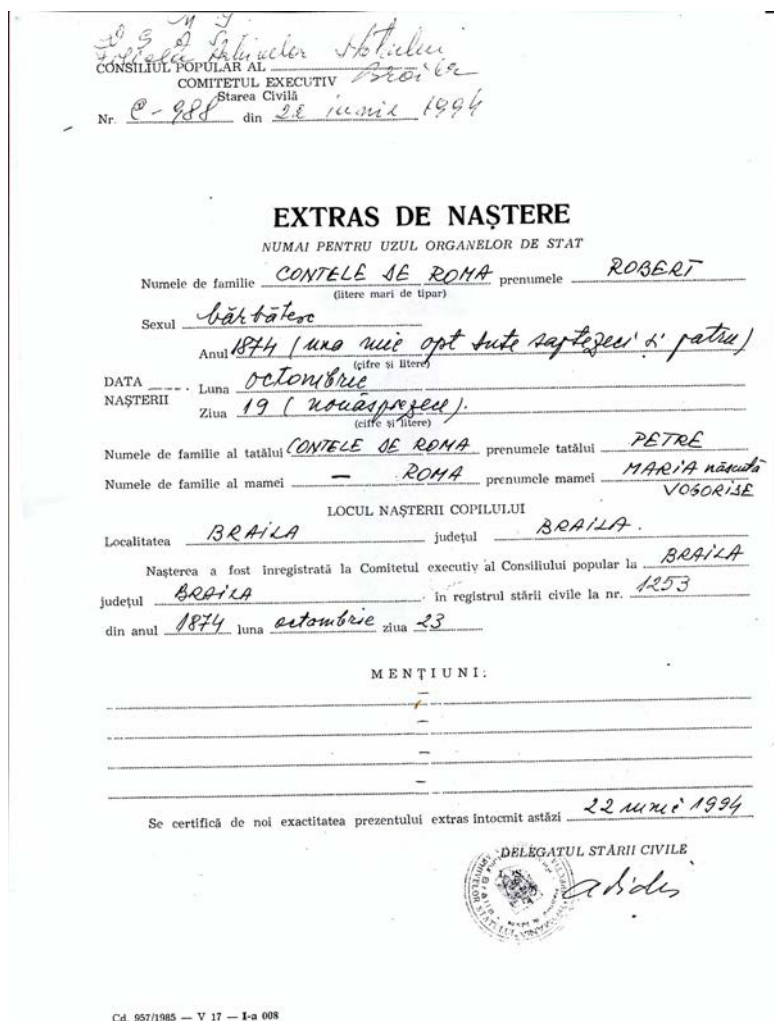 M J
D G A S
Filiala Arhivelor Statului
CONSILIUL POPULAR AL Braila
COMITETUL EXECUTIV
Starea Civilă
Nr. C-988 din 22 iunie 1994
EXTRAS DE NAȘTERE
NUMAI PENTRU UZUL ORGANELOR DE STAT
Numele de familie CONTELE DE ROMA prenumele ROBERT
(litere mari de tipar)
Sexul bărbătesc
Anul 1874 (una mie opt sute saptezeci si patru)
(cifre și litere)
DATA NAȘTERII Luna octombrie
Ziua 19 (nouăsprezece).
(cifre și litere)
Numele de familie al tatălui CONTELE DE ROMA prenumele tatălui PETRE
Numele de familie al mamei — ROMA prenumele mamei MARIA născută
VOGORISE
LOCUL NAȘTERII COPILULUI
Localitatea BRAILA județul BRAILA.
Nașterea a fost înregistrată la Comitetul executiv al Consiliului popular la BRAILA
județul BRAILA în registrul stării civile la nr. 1253
din anul 1874 luna octombrie ziua 23
MENȚIUNI:
—
—
—
—
Se certifică de noi exactitatea prezentului extras întocmit astăzi 22 iunie 1994
DELEGATUL STĂRII CIVILE
Cd. 957/1985 — V 17 — I-a 008